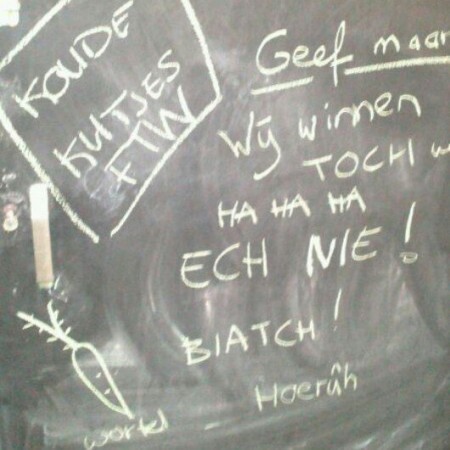 KOUDE
KUTJES
FTW
Geef maar
Wij winnen
TOCH
HA HA HA
ECH NIE!
BIATCH!
Hoerûh
wortel